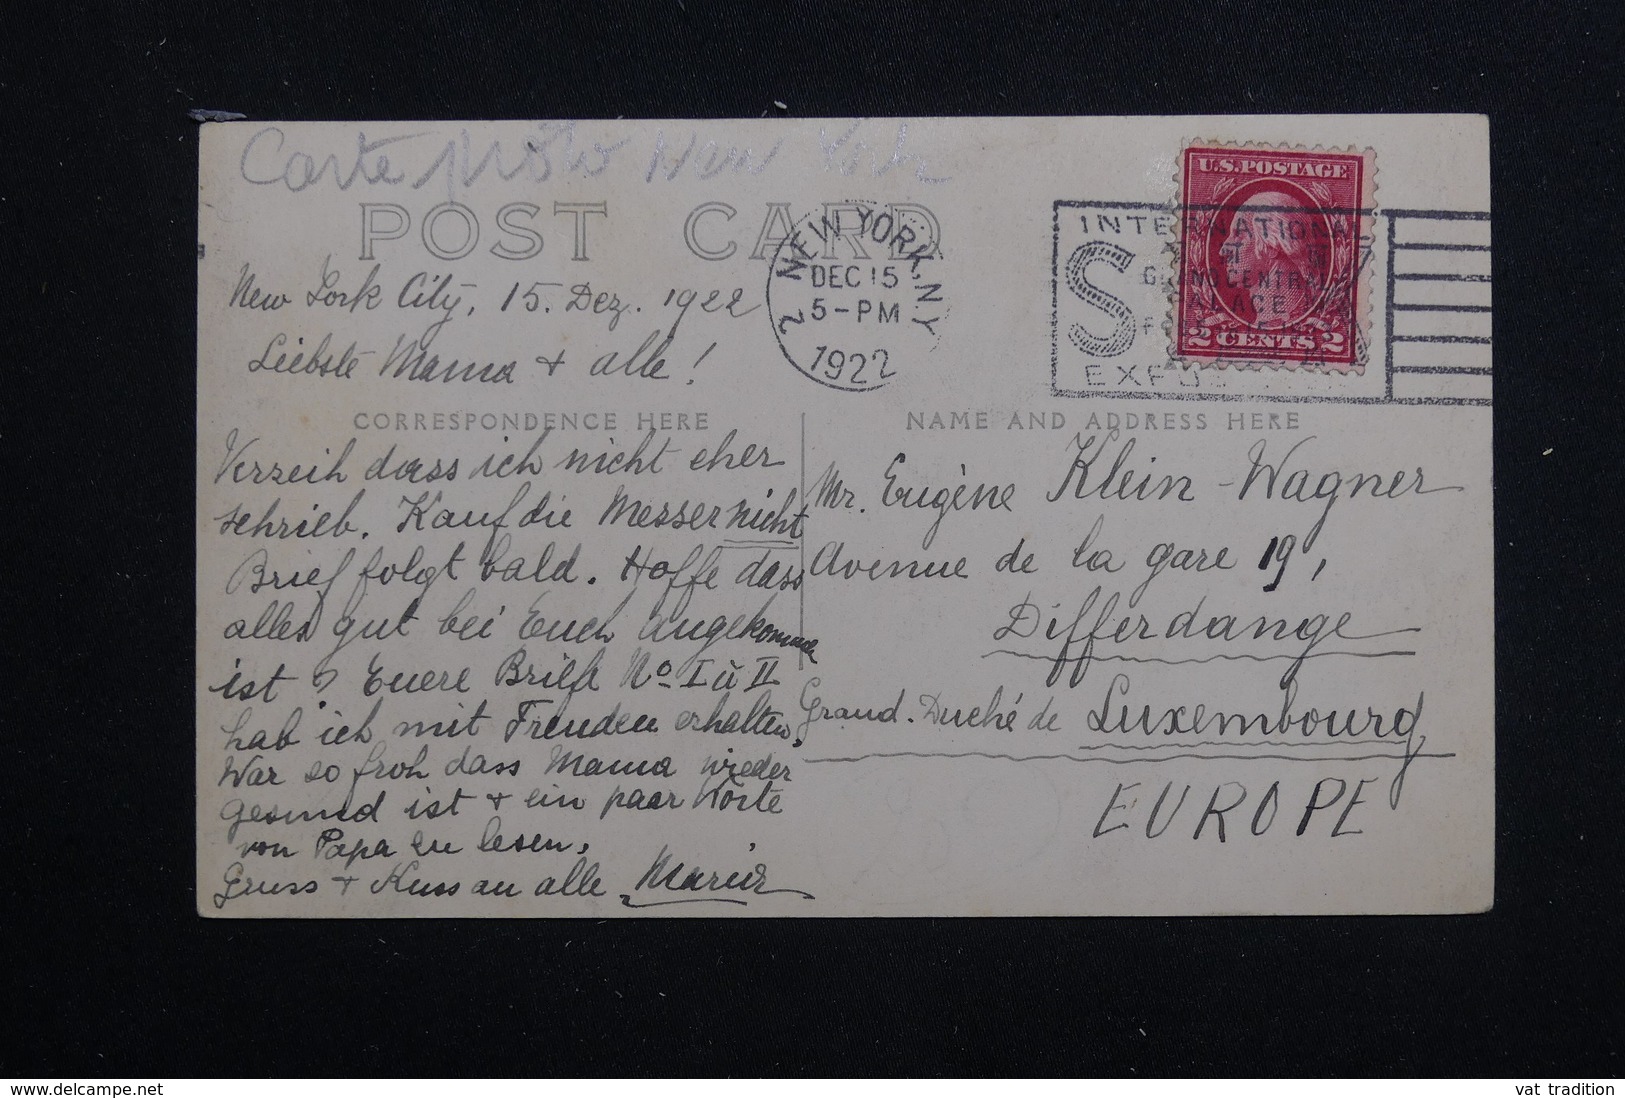 Carte photo New York
POST CARD
New York City, 15. Dez. 1922
Liebste Mama + alle!
CORRESPONDENCE HERE
Verzeih dass ich nicht eher
schrieb. Kauf die Messer nicht
Brief folgt bald. Hoffe dass
alles gut bei Euch angekommen
ist? Euere Briefe No I u II
hab ich mit Freuden erhalten.
War so froh dass Mama wieder
gesund ist + ein paar Worte
von Papa zu lesen.
Gruss + Kuss an alle
NEW YORK, N.Y.
2
DEC 15
5-PM
1922
U.S. POSTAGE
2 CENTS 2
INTERNATIONAL
S
GRAND CENTRAL
PALACE
NAME AND ADDRESS HERE
Mr. Eugène Klein-Wagner
Avenue de la gare 19,
Differdange
Grand-Duché de Luxembourg
EUROPE
www.delcampe.net
vat_tradition